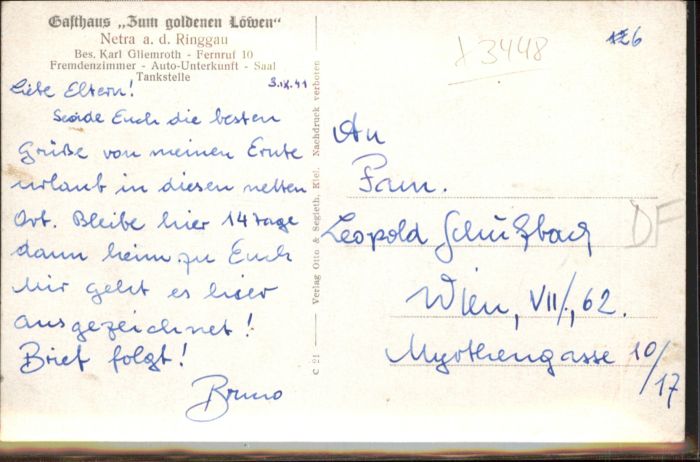 Gasthaus „Zum goldenen Löwen“
Netra a. d. Ringgau
Bes. Karl Gliemroth - Fernruf 10
Fremdenzimmer - Auto-Unterkunft - Saal
Tankstelle
3.IX.41
Liebe Eltern!
Sende Euch die besten
Grüße von meinen Ernte
urlaub in diesen netten
Ort. Bleibe hier 14 Tage
dann heim zu Euch
Mir geht es hier
ausgezeichnet!
Brief folgt!
Bruno
C 21 — Verlag Otto & Segieth, Kiel. Nachdruck verboten
3448
26
An
Fam.
Leopold Schützbach
Wien, VII/, 62.
Myrthengasse 10/17
DF